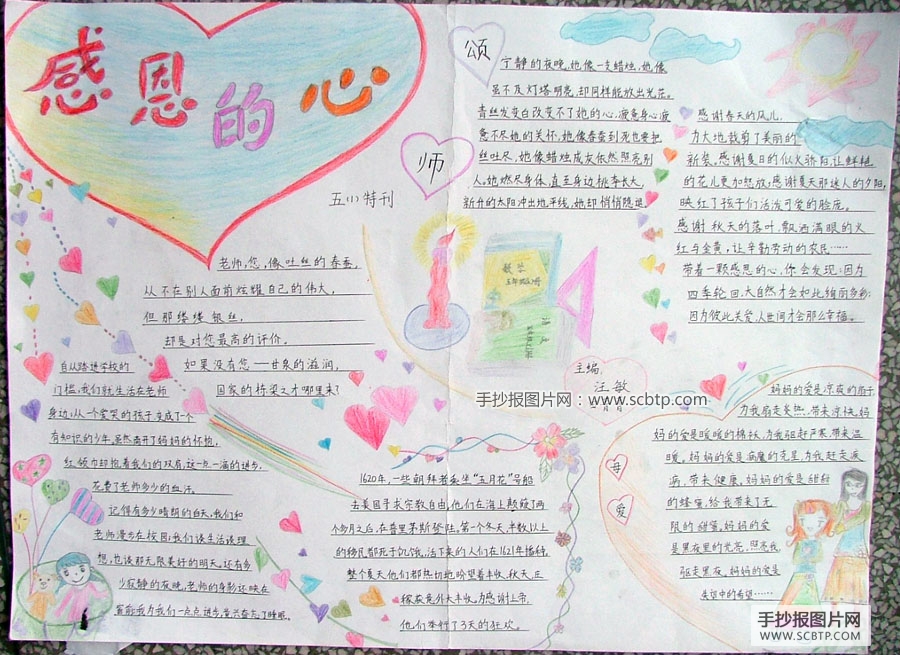 感恩的心
五(1)特刊
颂
师
宁静的夜晚,她像一支蜡烛,她像
虽不及灯塔明亮,却同样能放出光茫。
青丝发变白改变不了她的心,疲惫身心疲
惫不尽她的关怀,她像春蚕到死也要把
丝吐尽,她像蜡烛成灰依然照亮别
人。她燃尽身体,直至身边桃李长大,
新升的太阳冲出地平线,她却悄悄隐退
感谢春天的风儿,
为大地裁剪了美丽的
新装,感谢夏日的似火骄阳,让鲜艳
的花儿更加怒放;感谢夏天那迷人的夕阳,
映红了孩子们活泼可爱的脸庞。
感谢秋天的落叶,飘洒满眼的火
红与金黄,让辛勤劳动的农民……
带着一颗感恩的心,你会发现:因为
四季轮回,大自然才会如此绚丽多彩;
因为彼此关爱,人世间才会那么幸福。
老师,您,像吐丝的春蚕,
从不在别人面前炫耀自己的伟大,
但那缕缕银丝,
却是对您最高的评价。
如果没有您——甘泉的滋润,
国家的栋梁之才哪里来?
数学
语文
主编:
汪敏
手抄报图片网:www.scbtp.com
自从踏进学校的
门槛,我们就生活在老师
身边;从一个爱哭的孩子,变成了一个
有知识的少年,虽然离开了妈妈的怀抱,
红领巾却抱着我们的双肩,这一点一滴的进步,
花费了老师多少的血汗。
记得有多少晴朗的白天,我们和
老师漫步在校园;我们谈生活谈理
想,也谈那无限美好的明天,还有多
少寂静的夜晚,老师的身影还映在
窗前,我为我们一点点进步,曾兴奋忘了睡眠。
1620年,一些朝拜者乘坐“五月花”号船
去美国寻求宗教自由,他们在海上颠簸了两
个多月之后,在普里茅斯登陆,第一个冬天,半数以上
的移民都死于饥饿,活下来的人们在1621年播种,
整个夏天他们都热切地盼望着丰收,秋天,庄
稼获意外大丰收,为感谢上帝,
他们举行了3天的狂欢。
母
爱
妈妈的爱是凉夜的扇子,
为我扇走炎热,带来凉快,妈
妈的爱是暖暖的棉袄,为我驱赶严寒,带来温
暖。妈妈的爱是病魔的克星,为我赶走疾
病,带来健康。妈妈的爱是甜甜
的蜂蜜,给我带来了无
限的甜蜜,妈妈的爱
是黑夜里的光亮,照亮我,
驱走黑夜。妈妈的爱是
失望中的希望……
手抄报图片网
WWW.SCBTP.COM